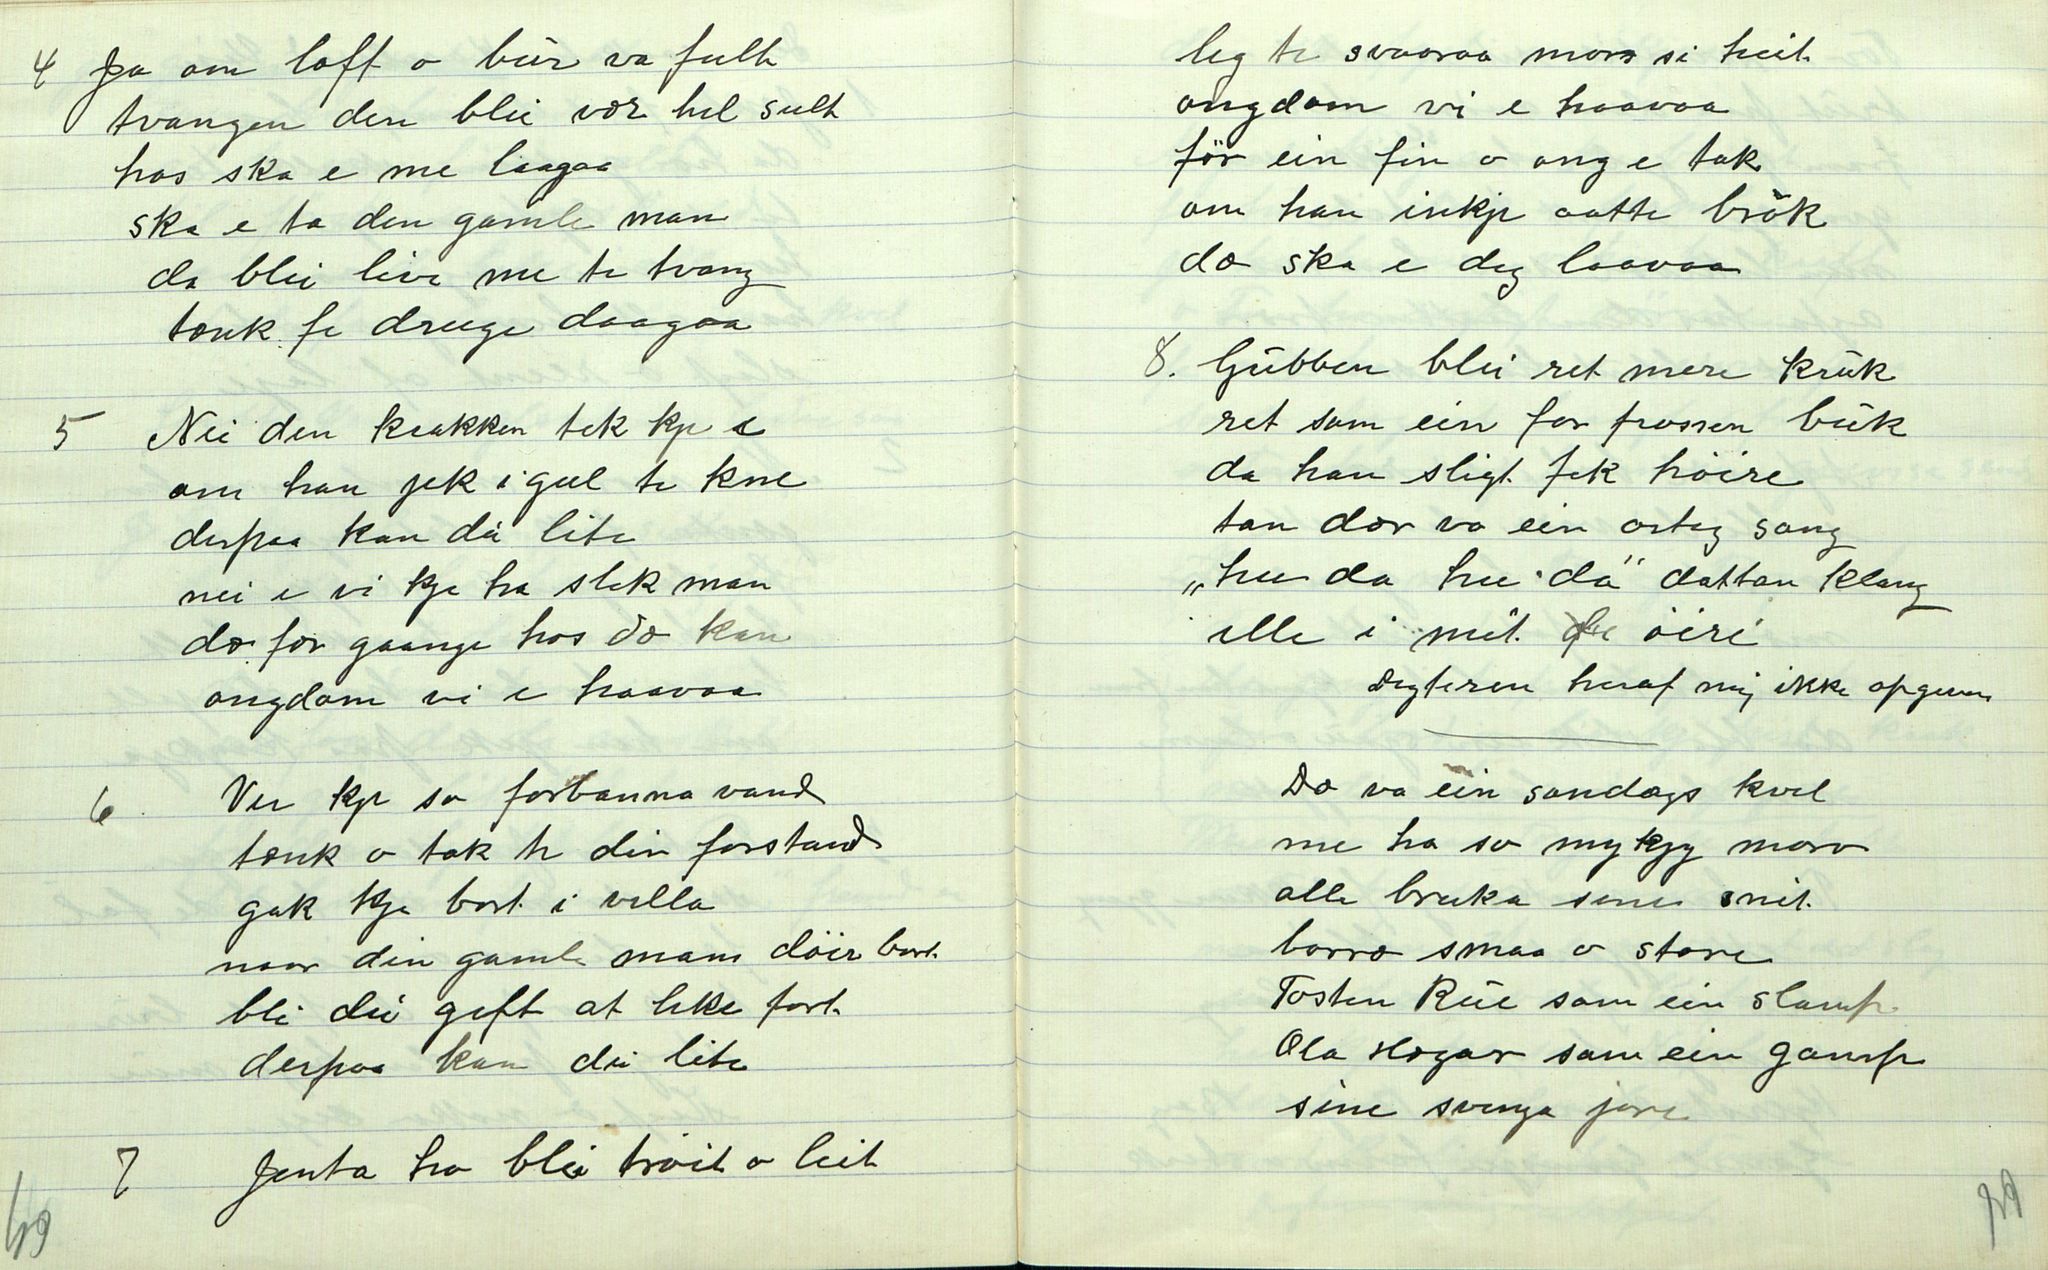 4 Ja om loft o bür va fult
tvangen den blei vær hel sult
hos ska e me laagaa
ska e ta den gamle man
da blei live me te tvang
tænk fe druge daagaa
5 Nei den krakken tek kje e
om han jek i gul te kne
derpaa kan dü lite
nei e vi kje ha slek man
dæ for gaange hos dæ kan
ongdom vi e haavaa
6 Ver kje so forbanna vand
tænk o tak te din forstand
gak kje bort i villa
naar din gamle mann döir bort
bli dü geft at like fort
derpaa kan dü lite
7 Jenta ho blei tröit o leit
49
leg te svaaraa mors si heit
ongdom vi e haavaa
för ein fin o ong e tak
om han inkje aatte brök
dæ ska e deg laavaa
8. Gübben blei ret mere krük
ret som ein for frossen bük
da han sligt fek höire
tan dær va ein arteg sang
„hu da hu da" dattan klang
ille i mit öire
Degteren heraf mij ikke opgiven
Dæ va ein sondags kvel
me ha so mykjy moro
alle bruka sine snit
borro smaa o store
Tosten Rüe som ein slamp
Ola Hogar som ein gamp
sine svenga jore